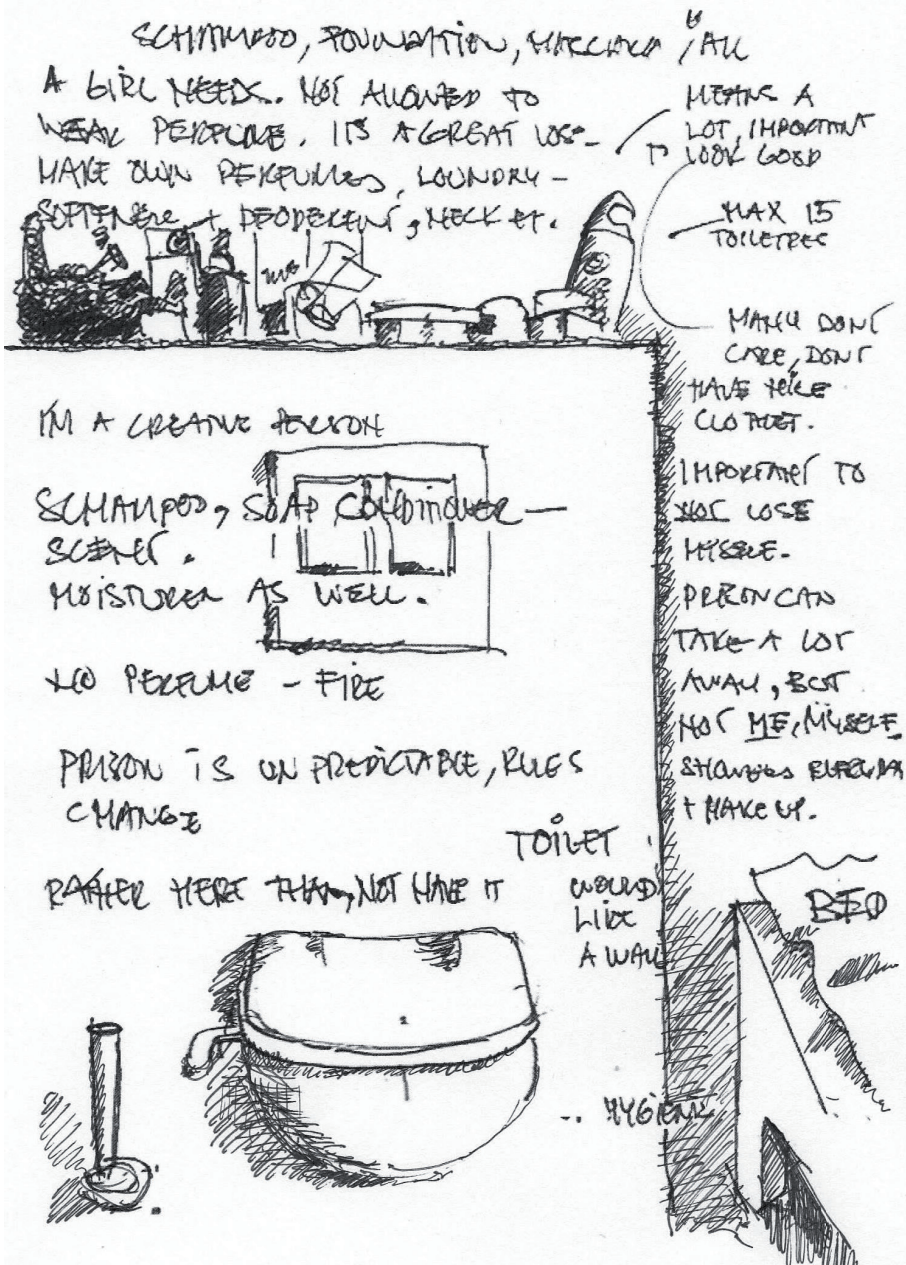 SCHAMPOO, FOUNDATION, MASCARA, ALL
A GIRL NEEDS.. NOT ALLOWED TO
WEAR PERFUME. ITS A GREAT LOSS-
MAKE OWN PERFUMES, LOUNDRY-
SOFTENER + DEODERENT, NECK ET.
MEANS A
LOT, IMPORTANT
TO LOOK GOOD
MAX 15
TOILETRES
MANY DONT
CARE, DONT
HAVE NICE
CLOTHET.
IMPORTANT TO
NOT LOSE
MYSELF.
PRISON CAN
TAKE A LOT
AWAY, BUT
NOT ME, MYSELF
SHOWERS EVERYDAY
+ MAKE UP.
I'M A CREATIVE PERSON
SCHAMPOO, SOAP CONDITIONER-
SCENT.
MOISTURER AS WELL.
NO PERFUME - FIRE
PRISON IS UNPREDICTABLE, RULES
CHANGE
RATHER HERE THAN, NOT HAVE IT
TOILET
WOULD
LIKE
A WALL
BED
.. HYGIENIC